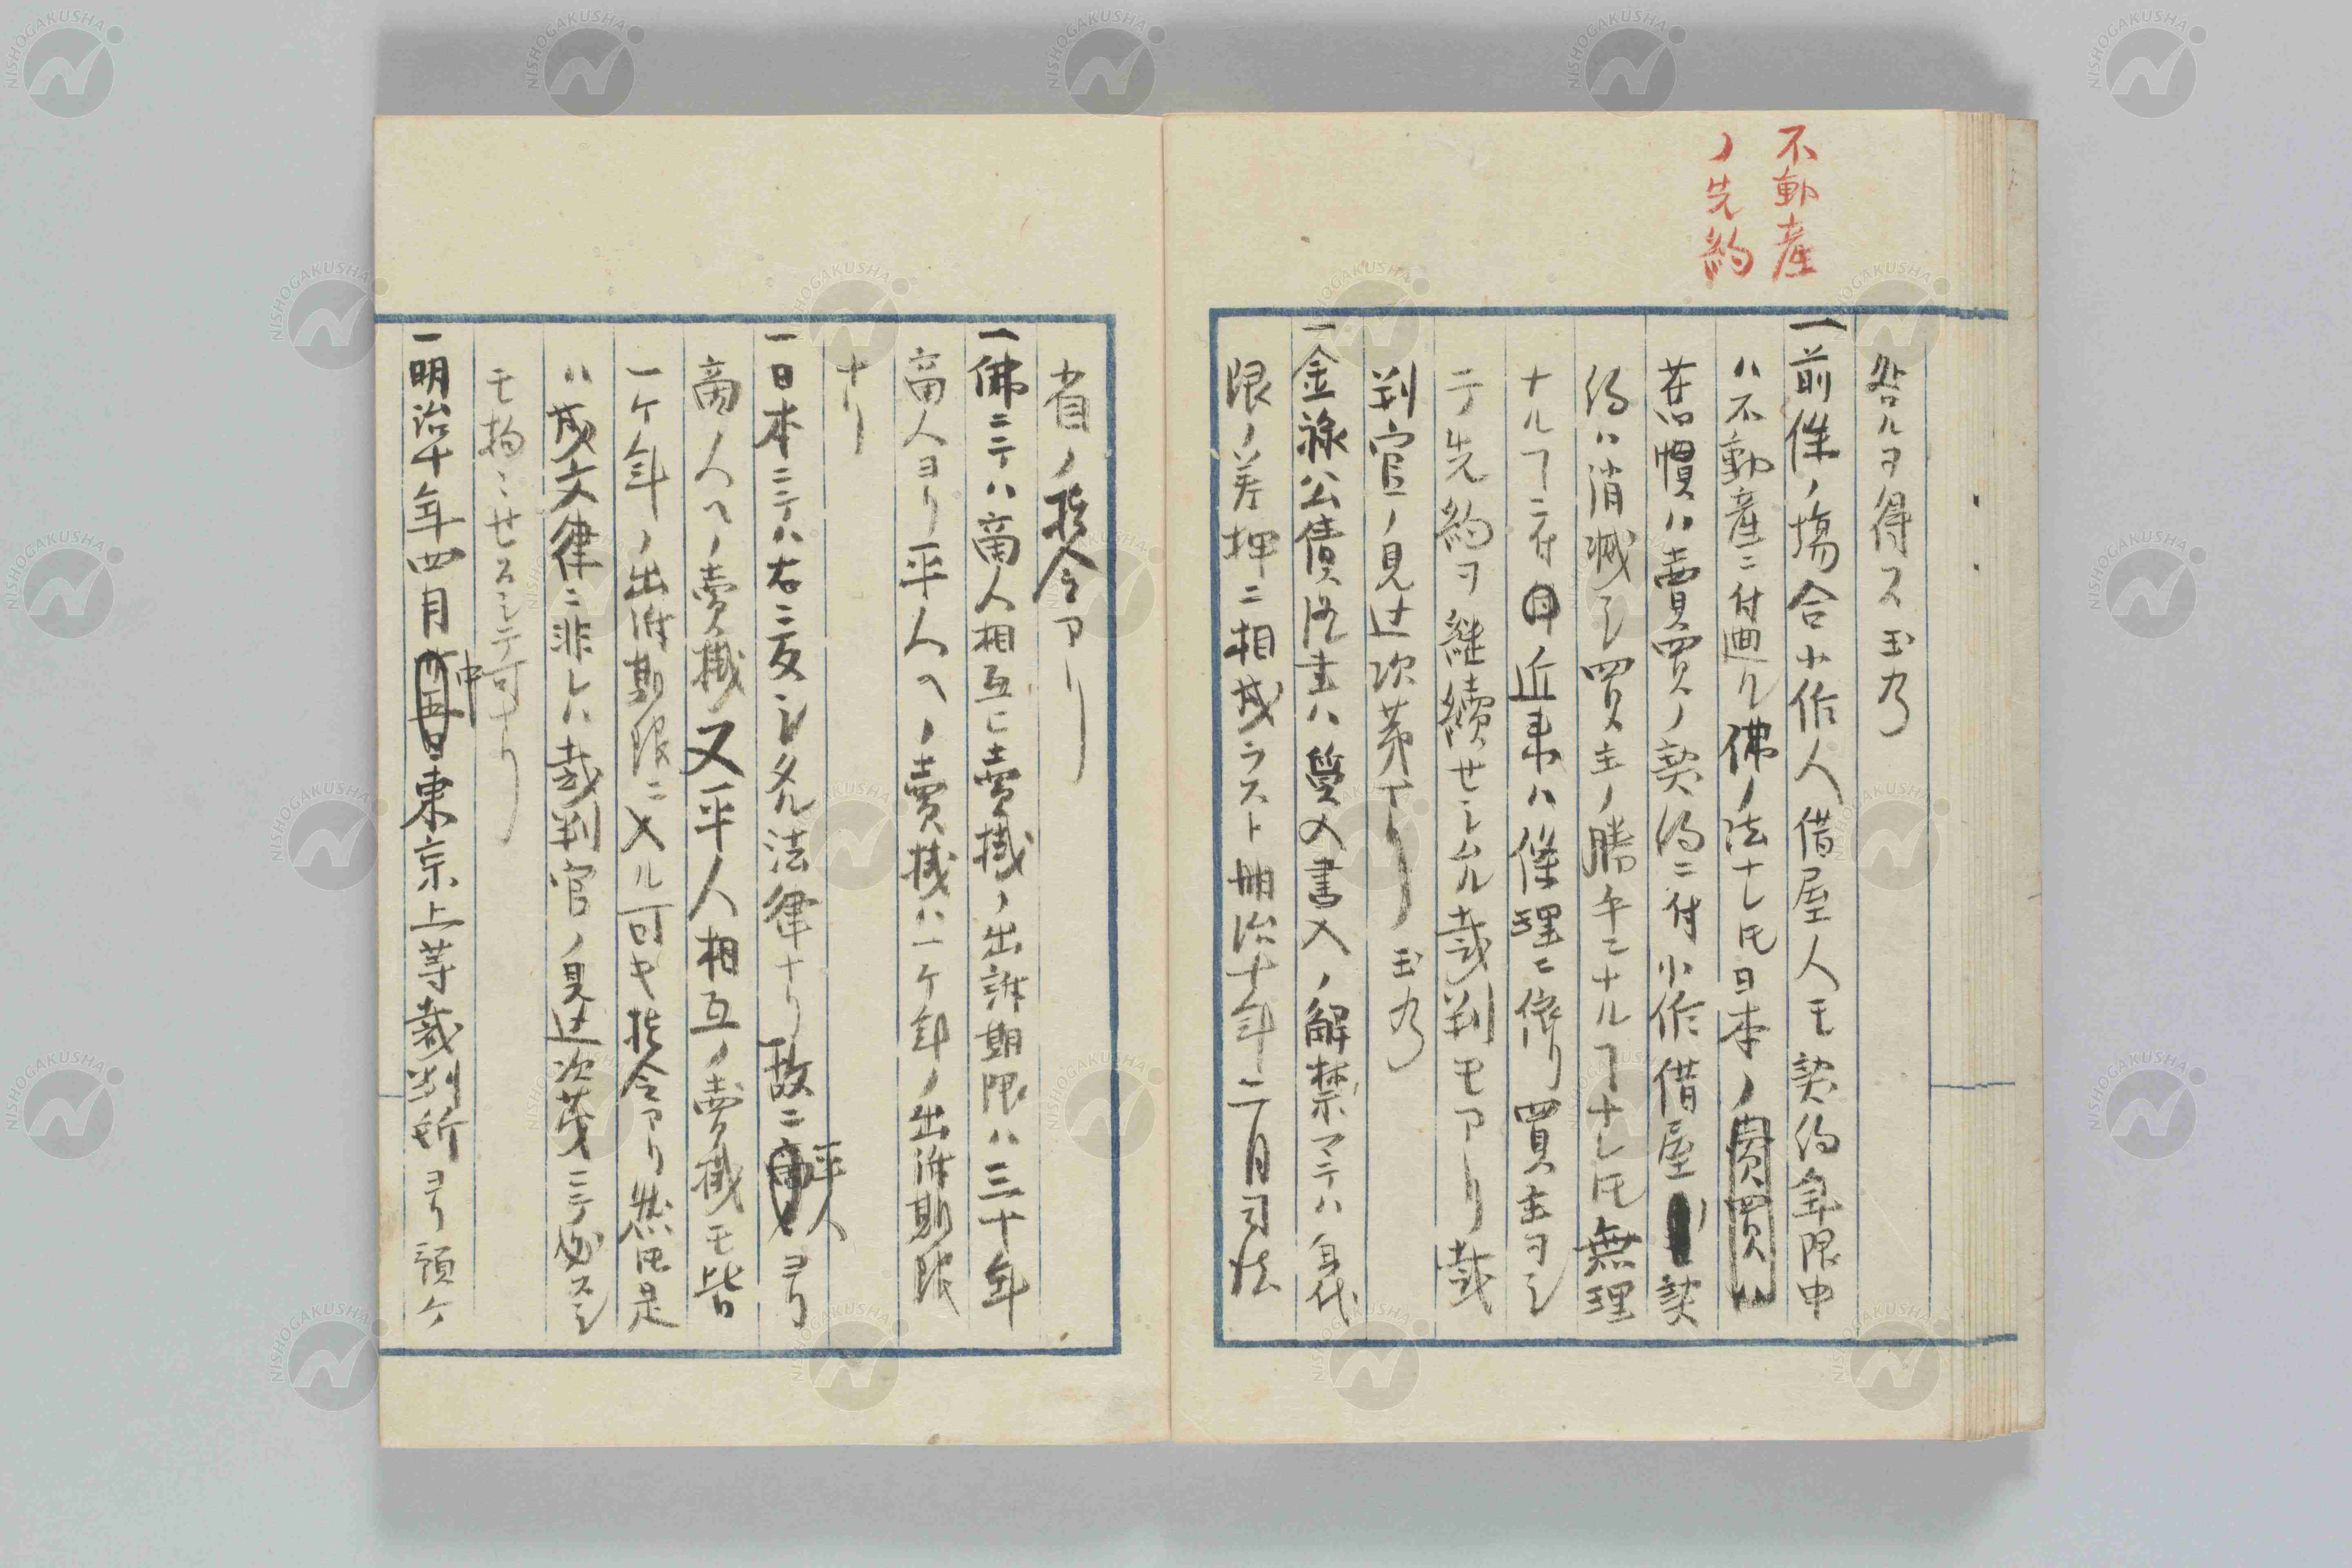 不動産
ノ先約
咎ルヲ得ス玉乃
一前條ノ塲合小作人借屋人モ契約年限中
ハ不動産ニ付廻ル佛ノ法ナレ𪜈日本ノ賣買ハ
旧慣ハ賣買ノ契約ニ付小作借屋ノ契
約ハ消滅シ買主ノ勝手ニナルヿナレ𪜈無理
ナルヿニ付近来ハ條理ニ依リ買主ヲシ
テ先約ヲ継續セシムル裁判モアリ裁
判官ノ見込次第ナリ玉乃
一金祿公債証書ハ質入書入ノ解禁マテハ身代
限ノ差押ニ相成ラスト明治十年二月司法
省ノ指令アリ
一佛ニテハ商人相互ニ賣掛ノ出訴期限ハ三十年
商人ヨリ平人ヘノ賣掛ハ一ケ年ノ出訴期限
ナリ
一日本ニテハ右ニ反シタル法律ナリ故ニ平人ヨリ
商人ヘノ賣掛又平人相互ノ賣掛モ皆
一ケ年ノ出訴期限ニ入ル可キ指令アリ然𪜈是
ハ成文律ニ非レハ裁判官ノ見込次第ニテ必スシ
モ拘ハセスシテ可ナリ
一明治十年四月中東京上等裁判所ヨリ預ケ
NISHOGAKUSHA